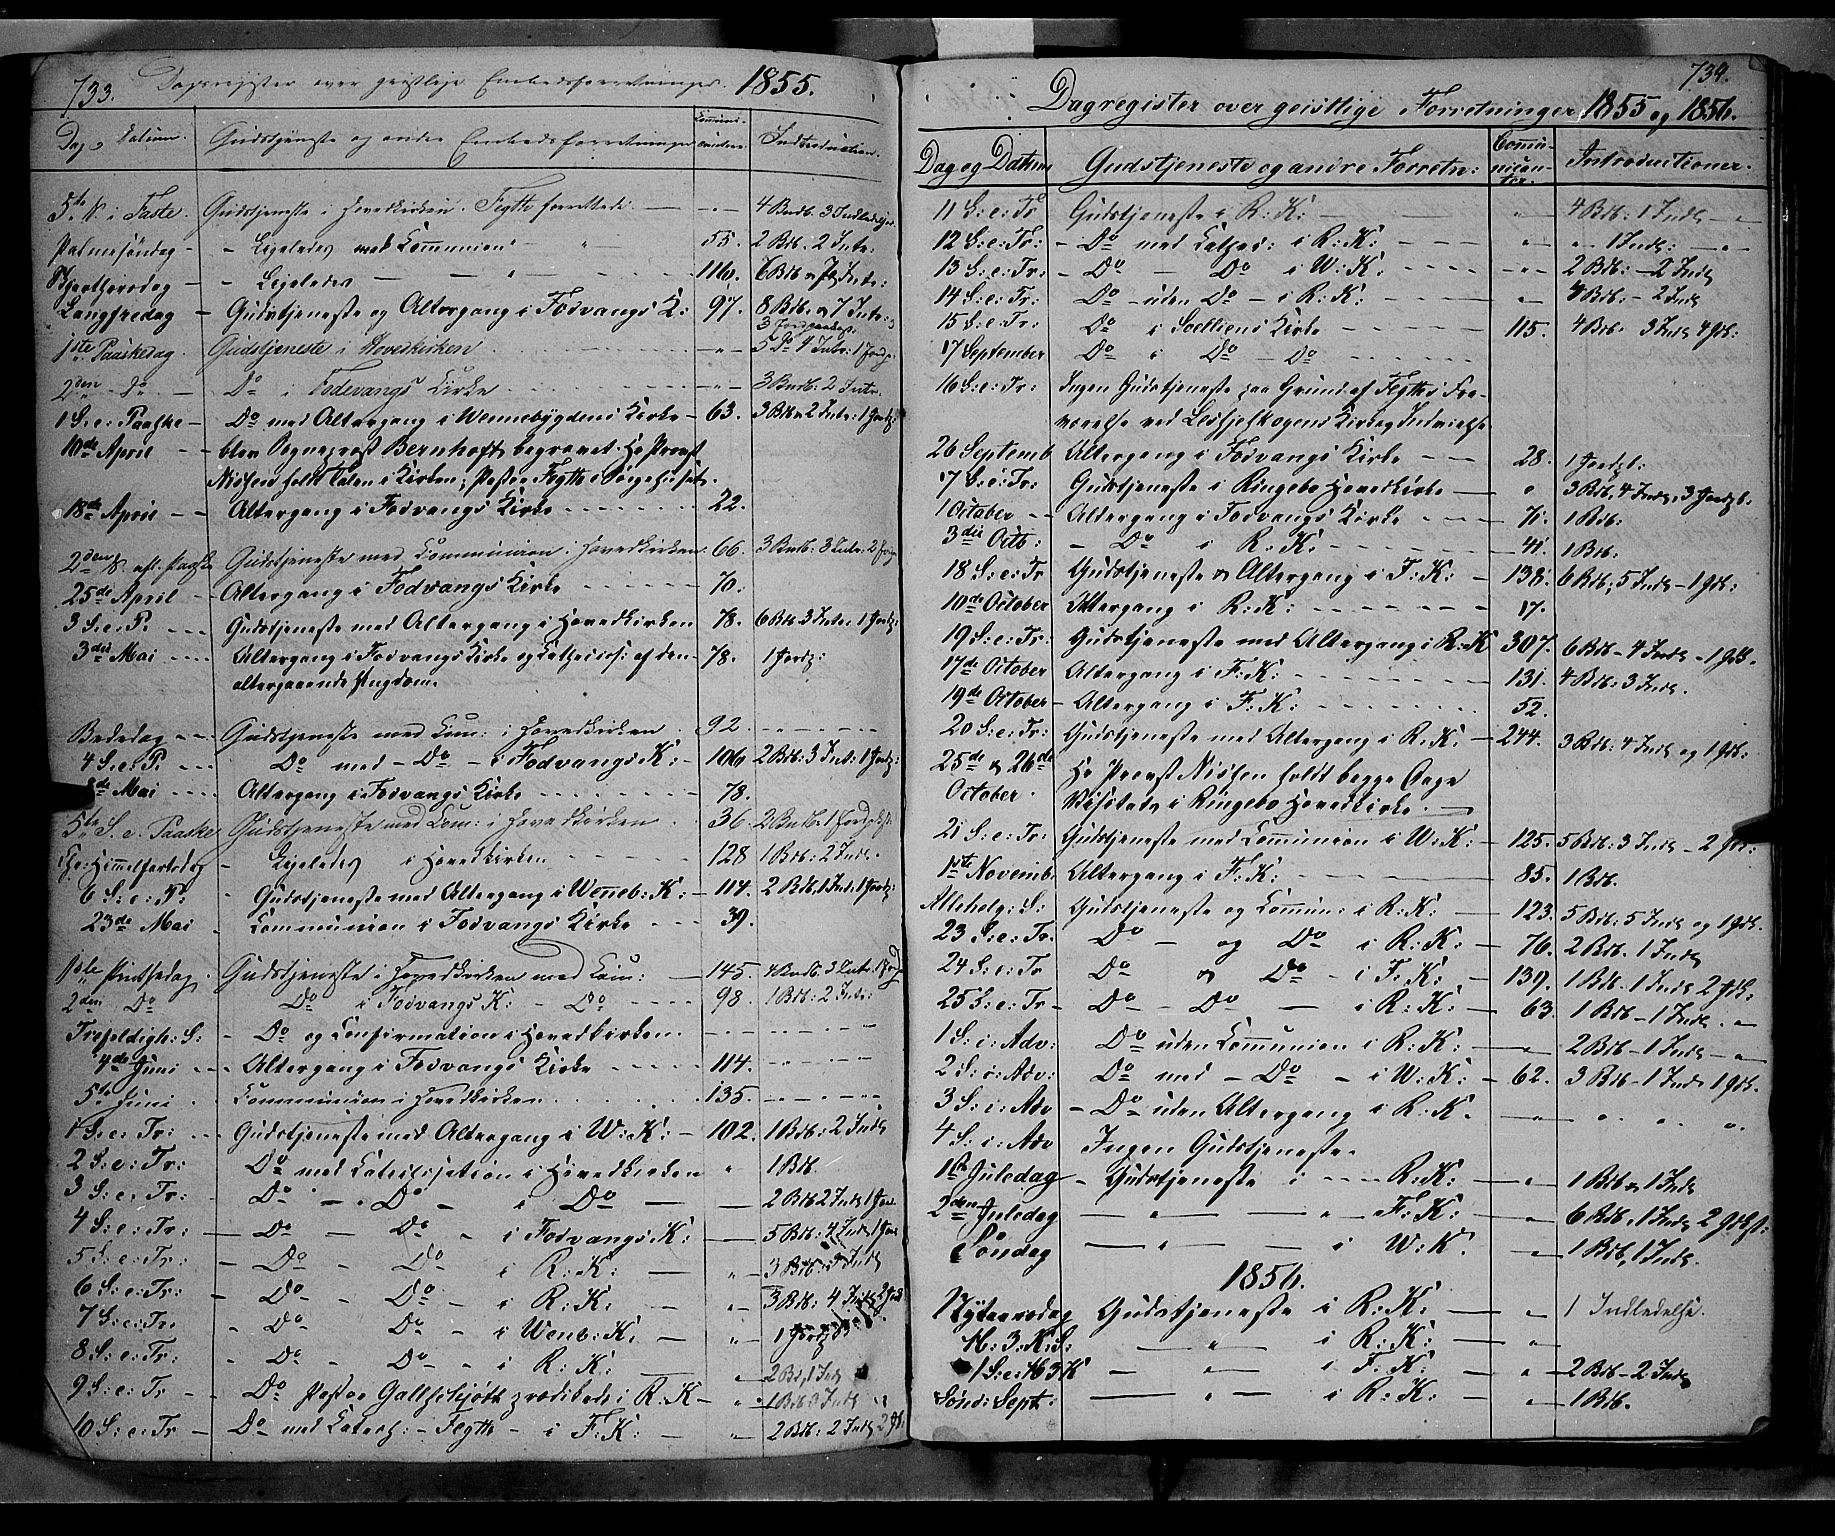 733. Dagregister over geistlige Embedsforretninger 1855.
Dag og Datum. Gudstjeneste og andre Embedsforretninger Communicantere. Introductioner.
5te S. i Faste. Gudstjeneste i Hovedkirken. Flygth forrettede. — „ — 4 Bndb. 3 Indledelser.
Palmesöndag - - Ligeledes med Communion - „ - 55. 2 Bdb. 2 Intr:
Skjærthorsdag - - Ligeledes — — „ - - - 116. 6 Bdb
Langfredag - Gudstjeneste og Altergang i Fodvangs K: 97. 8 Bdb 7 Intr:
1ste Paaskedag. Gudstjeneste i Hovedkirken - „ - 5 Do 4 Intr: 1 Jordp:
2den Do - Do i Fodevangs Kirke - „ - 3 Bndb: 2 Intr.
1 S. e: Paaske - Do med Altergang i Wennebygdens Kirke - 63. 3 Bdb 2 Intr: 1 Jordp:
10de April - - blev Sogneprest Bernhoft begravet. Hr Provst
Nissen holdt Talen i Kirken; Pastor Flygth i Sørgehuset.
18de April - - Altergang i Fodvangs Kirke - - - 22.
2den S. eft. Paaske Gudstjeneste med Communion i Hovedkirken 66. 3 Bndb. 3 Intr: 2 Jordp
25de April - Altergang i Fodvangs Kirke - - - 70.
3 S. e: P. - - - Gudstjeneste med Altergang i Hovedkirken 78. 6 Bdb 3 Intr: 1 Jordp:
3die Mai - - - Altergang i Fodvangs Kirke og Catechis: af den 78. 1 Jordp:
altergaaende Ungdom.
Bededag - - - Gudstjeneste med Com: i Hovedkirken. 92. - - - -
4 S. e. P. - - - Do med - Do - i Fodvangs K: - 106 2 Bdb: 3 Int: 1 Jordp:
de Mai - - - Altergang i Fodvangs Kirke - - - 78.
5te S. e. Paaske Gudstjeneste med Com: i Hovedkirken 36 2 Bndb. 1 Jordp
Himmelfartsdag - Ligeledes i Hovedkirken - - - 128 1 Bdb: 2 Indl.
6 S: e: P. - Gudstjeneste med Altergang i Wenneb: K: - 114. 2 Bdb 1 Ind: 1 Jordp:
23de Mai - Communion i Fodvangs Kirke - - - 39.
1ste Pintsedag. Gudstjeneste i Hovedkirken med Com: - 145. 4 Bndb. 3 Intr. 1 Jordp
2den Do Do i Fodvangs K: - Do - - - 98. 1 Bdb: 2 Indl:
Trefoldigh: S: - Do og Confirmation i Hovedkirken. - - - -
4de Juni - - Altergang i Fodvangs Kirke - - - 114. - - - -
5te Juni. Communion i Hovedkirken - - - 135. - - - -
1 S: e: Tr: - - Gudstjeneste med Altergang i W: K: - 102. 1 Bdb: 2 Indl
2 S: e: Tr: Do med Catechisation i Hovedkirken „ 1 Bdb.
3 S: e: Tr: Do - Do - i Do — 2 Bdb 2 Indl 1 Jord
4 S: e: Tr: - Do — Do - i Fodvangs K: — 5 Bdb: 4 Indl 1 Jord
5 S: e: Tr: - Do - Do i R: K: — „ - 3 Bdb: Indl
6 S: e: Tr: - Do - Do - i R: K: — „ 3 Bdb: 4 Indl 2 Jord
7 S: e: Tr: - Do Do - i Wenb: K: — „ 1 Jordp
8 S: e: Tr: - Do - Do - i R: K: — „ 2 Bd, 1 Indl
9 S: e: Tr - - Do Pastor prædikede i R: K - „ 1 Bdb 3 Indl
10 S: e: Tr - Do med Catech: - Flygth - i F: K: — „ 2 Bdb: 2 Indl
734.
Dagregister over geistlige Forretninger 1855 og 1856.
Dag og Datum Gudstjeneste og andre Forretn: Communicanter. Introductioner.
11 S: e: Tr Gudstjeneste i R: K: — „ 4 Bdb: 1 Indl - „
12 S: e: Tr: - Do med Cathec: i R: K: - - - „ „ 1 Indl: — „
13 S: e: Tr: - Do - Do i W: K: - - - „ 2 Bdb: - 2 Indl
14 S: e: Tr: - Do - uden Do - i R: K: - - - „ 4 Bdb: - 2 Indl
15 S: e: Tr: Do i Kirke - - - 115. 4 Bdb: 3 Indl 4 Jdb:
17 September Do i Do - Do - - -
16 S: e: Tr: Ingen Gudstjeneste paa Grund af Flygths Fra-
værelse ved Kirkes Indvielse
26 Septemb Altergang i Fodvangs Kirke - - - 28. 1 Jordp:
17 S: e: Tr: Gudstjeneste i Ringebo Hovedkirke — „ 3 Bdb, 4 Indl, 3 Jordp:
1 October - - Altergang i Fodvangs Kirke - - - 71. 1 Bdb:
3die Octb: - Do i R: K: - - - 41. 1 Bdb:
18 S: e: Tr Gudstjeneste & Altergang i F: K: - 138. 6 Bdb, 5 Indl - 1 Jdb:
10de October Altergang i R: K: - - - 17.
19 S: e: Tr: Gudstjeneste med Altergang i R: K 307. 6 Bdb - 4 Indl - 1 Jdb.
17de October Altergang i F: K: - - - 131. 4 Bdb: 3 Indl.
19de October - Altergang i F: K: - - - 52.
20 S: e: Tr: Gudstjeneste med Altergang i R: K: - 244. 3 Bdb: 4 Indl og 1 Jdb:
25de & 26de Hr Provst Nissen holdt begge Dage
October. Visitats i Ringebo Hovedkirke. —
21 S: e: Tr: Gudstjeneste med Communion i W: K: - 125. 5 Bdb: 3 Indl - 2 Jdb:
1ste Novemb. Altergang i F: K: - - - 85. 1 Bdb.
Allehelg: S: Gudstjeneste og Comun: i R: K: — 123. 5 Bdb: 5 Indl og 1 Jdb.
23 S: e: Tr. Do - og Do i R: K: — 76. 2 Bdb. 1 Indl
24 S: e: Tr Do & Do - i F: K: — 139. 1 Bdb. 1 Indl 2 Jdb:
25 S: e: Tr - Do - Do — i R: K: — 63. 1 Bdb - 1 Indl. „
1 S: i: Adv: Do uden Communion i R: K: — „ 2 Bdb - 1 Indl - „
2 S: i: Adv: Do med - Do - i W: K: - 62. 3 Bdb - 1 Indl 1 Jdb.
3 S: i: Adv - Do uden Altergang i R: K. — „ „ „ „
4 S: i: Adv Ingen Gudstjeneste.
1ste Juledag - Gudstjeneste i - - - R: K: — „ 1 Bdb & 1 Indl
2den Juledag — „ — „ F: K: — „ 6 Bdb, 1 Indl 2 Jdb:
Söndag — „ — i W: K. „ 1 Bdb, 1 Indl.
1856.
Nytaarsdag Gudstjeneste i R: K: — „ 1 Indledelse.
H. 3. K. S: „ i R: K: — „
1 S: e: H 3 K — „ — i F: K: — „ 2 Bdb - 2 Indl
Sönd: Sept. — „ — i R: K: — „ 1 Bdb.